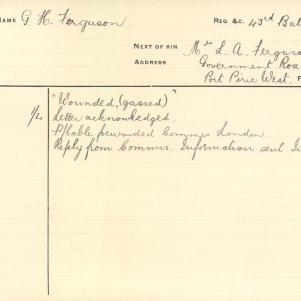 NAME G. H. Ferguson REG. &C. 43rd Bat
NEXT OF KIN Mrs L. A. Ferguso
ADDRESS Government Roa
Port Pirie West.
"Wounded, (gassed)"
Letter acknowledged.
P/Cable forwarded Commrs London.
Reply from Commrs. Information sent